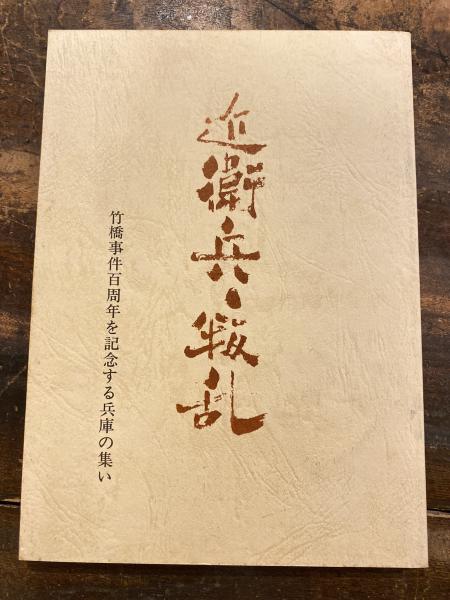 近衛兵、叛乱
竹橋事件百周年を記念する兵庫の集い